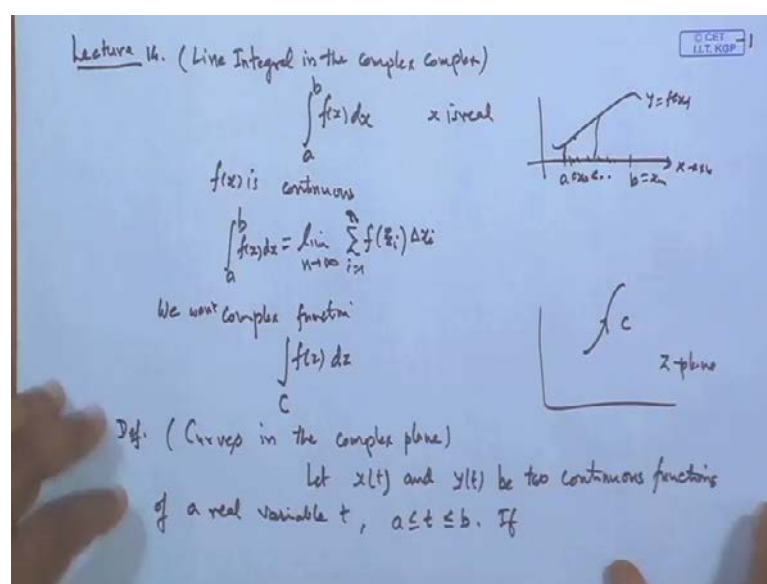 Lecture 14. (Line Integral in the complex complex)
© CET
I.I.T. KGP
∫_a^b f(x) dx x is real
y = f(x)
a = x₀ x₁ .. b = xₙ x-axis
f(x) is continuous
∫_a^b f(x) dx = lim_{n→∞} ∑_{i=1}^n f(ξᵢ) Δxᵢ
We want complex function
∫_C f(z) dz
C
Z-plane
Def. (Curves in the complex plane)
Let x(t) and y(t) be two continuous functions
of a real variable t, a ≤ t ≤ b. If